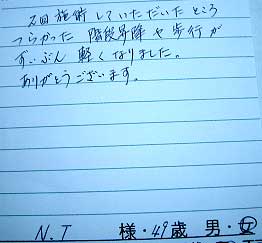 2回施術していただいたところ
つらかった 階段昇降や歩行が
ずいぶん 軽くなりました。
ありがとうございます。
N.T 様・49歳 男・女